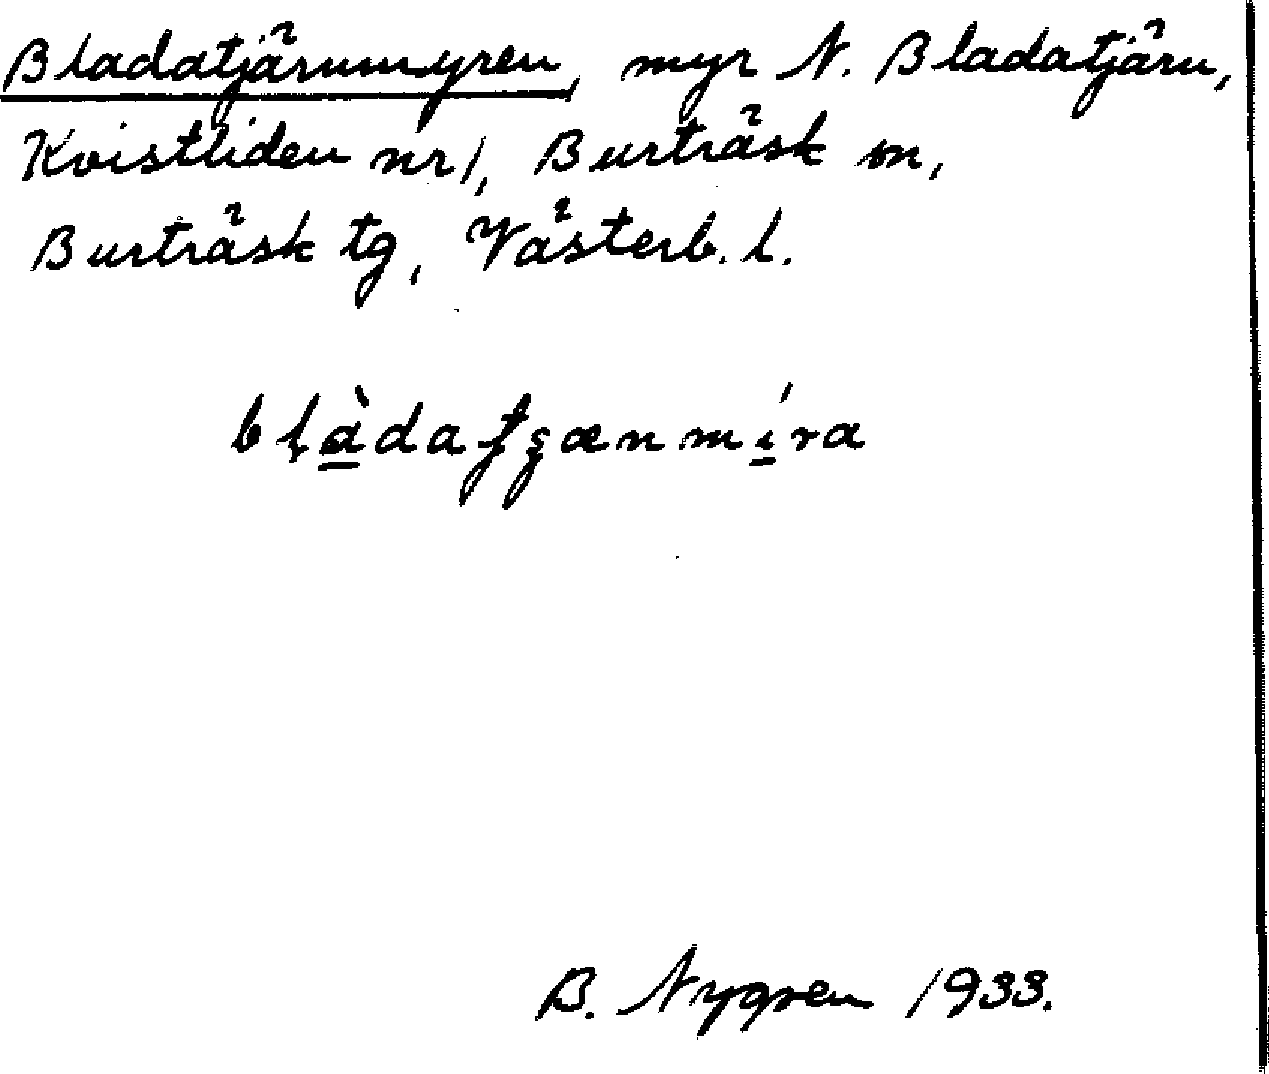 Bladatjärnmyren, myr N. Bladatjärn,
Kvistliden nr 1, Burträsk sn,
Burträsk tg, Västerb. l.
B. Nygren 1933.